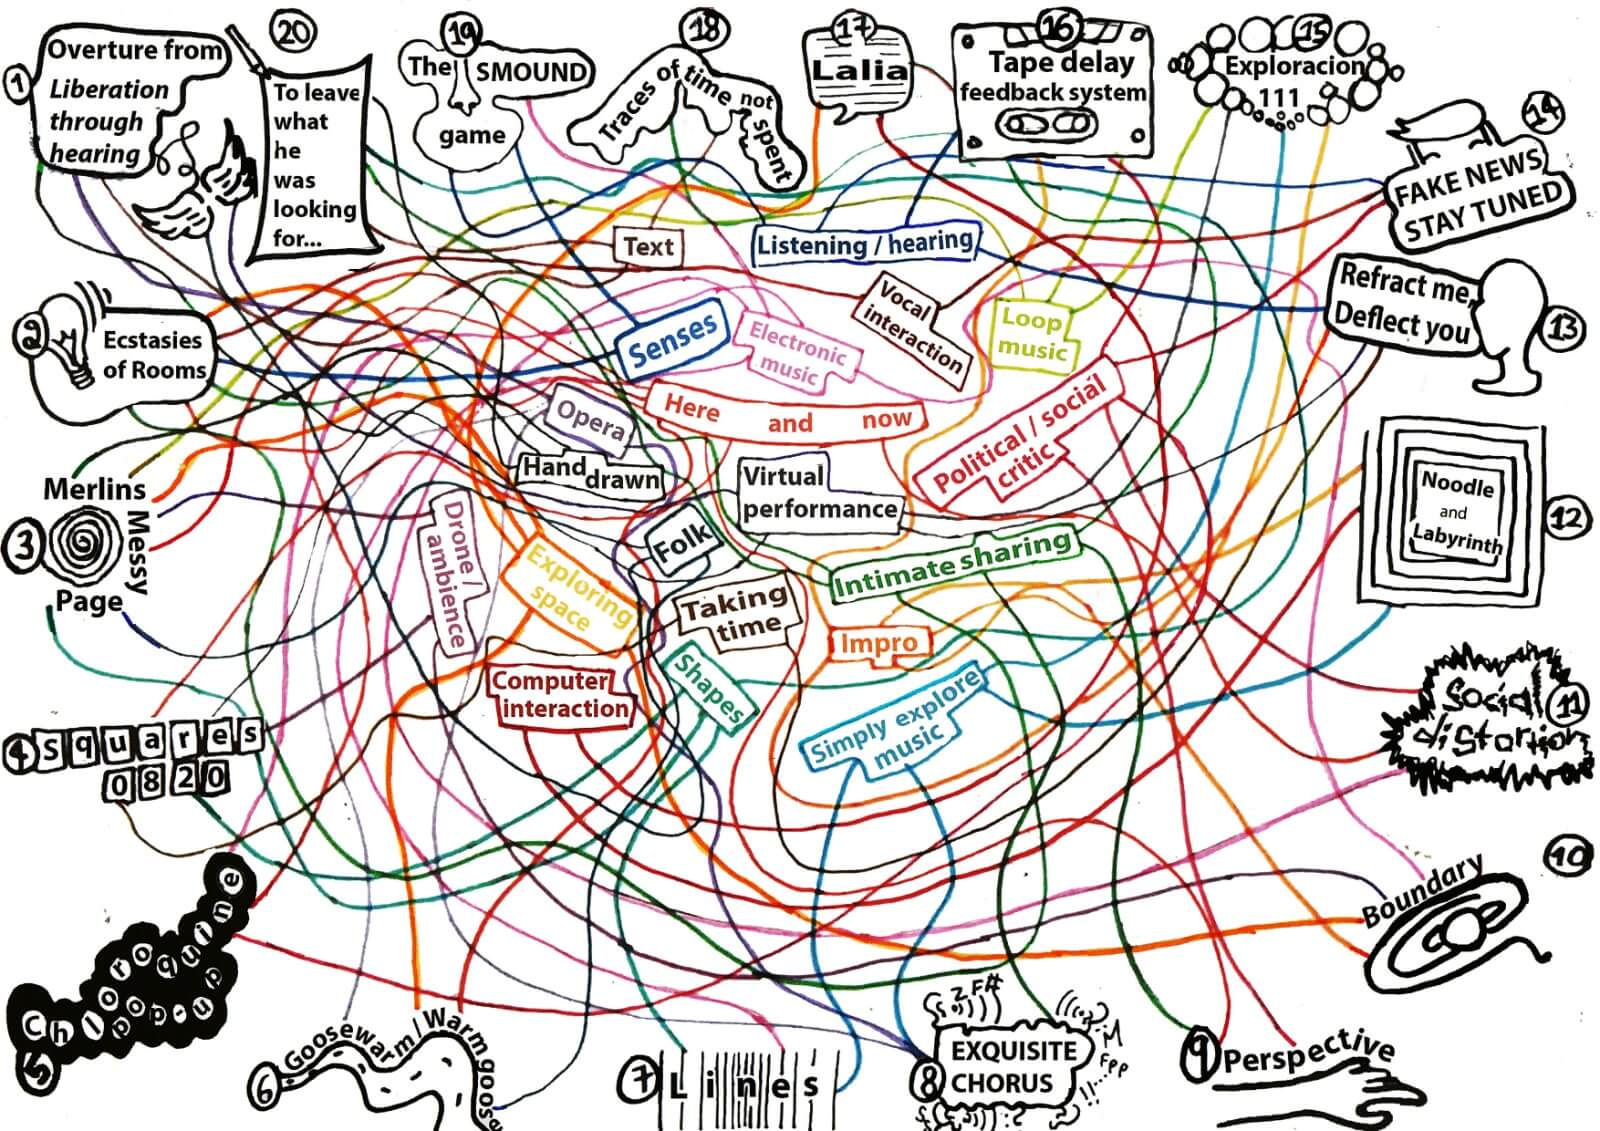 1
Overture from
Liberation
through
hearing
20
To leave
what
he
was
looking
for...
19
The SMOUND
game
18
Traces of time not spent
17
Lalia
16
Tape delay
feedback system
15
Exploracion
111
14
FAKE NEWS
STAY TUNED
Text
Listening / hearing
2
Ecstasies
of Rooms
Senses
Electronic
music
Vocal
interaction
Loop
music
Refract me,
Deflect you
13
Opera
Here and now
Political / social
critic
Hand drawn
Virtual
performance
3
Merlins
Messy
Page
Drone /
ambience
Exploring
space
Folk
Intimate sharing
Noodle
and
Labyrinth
12
Taking
time
Impro
Computer
interaction
Shapes
Simply explore
music
4
squares
0820
Social
distortion
11
5
Chloroquine
Plop-up
10
Boundary
6
Goosewarm/Warmgoose
7
Lines
8
ZF#
EXQUISITE
CHORUS
9
Perspective